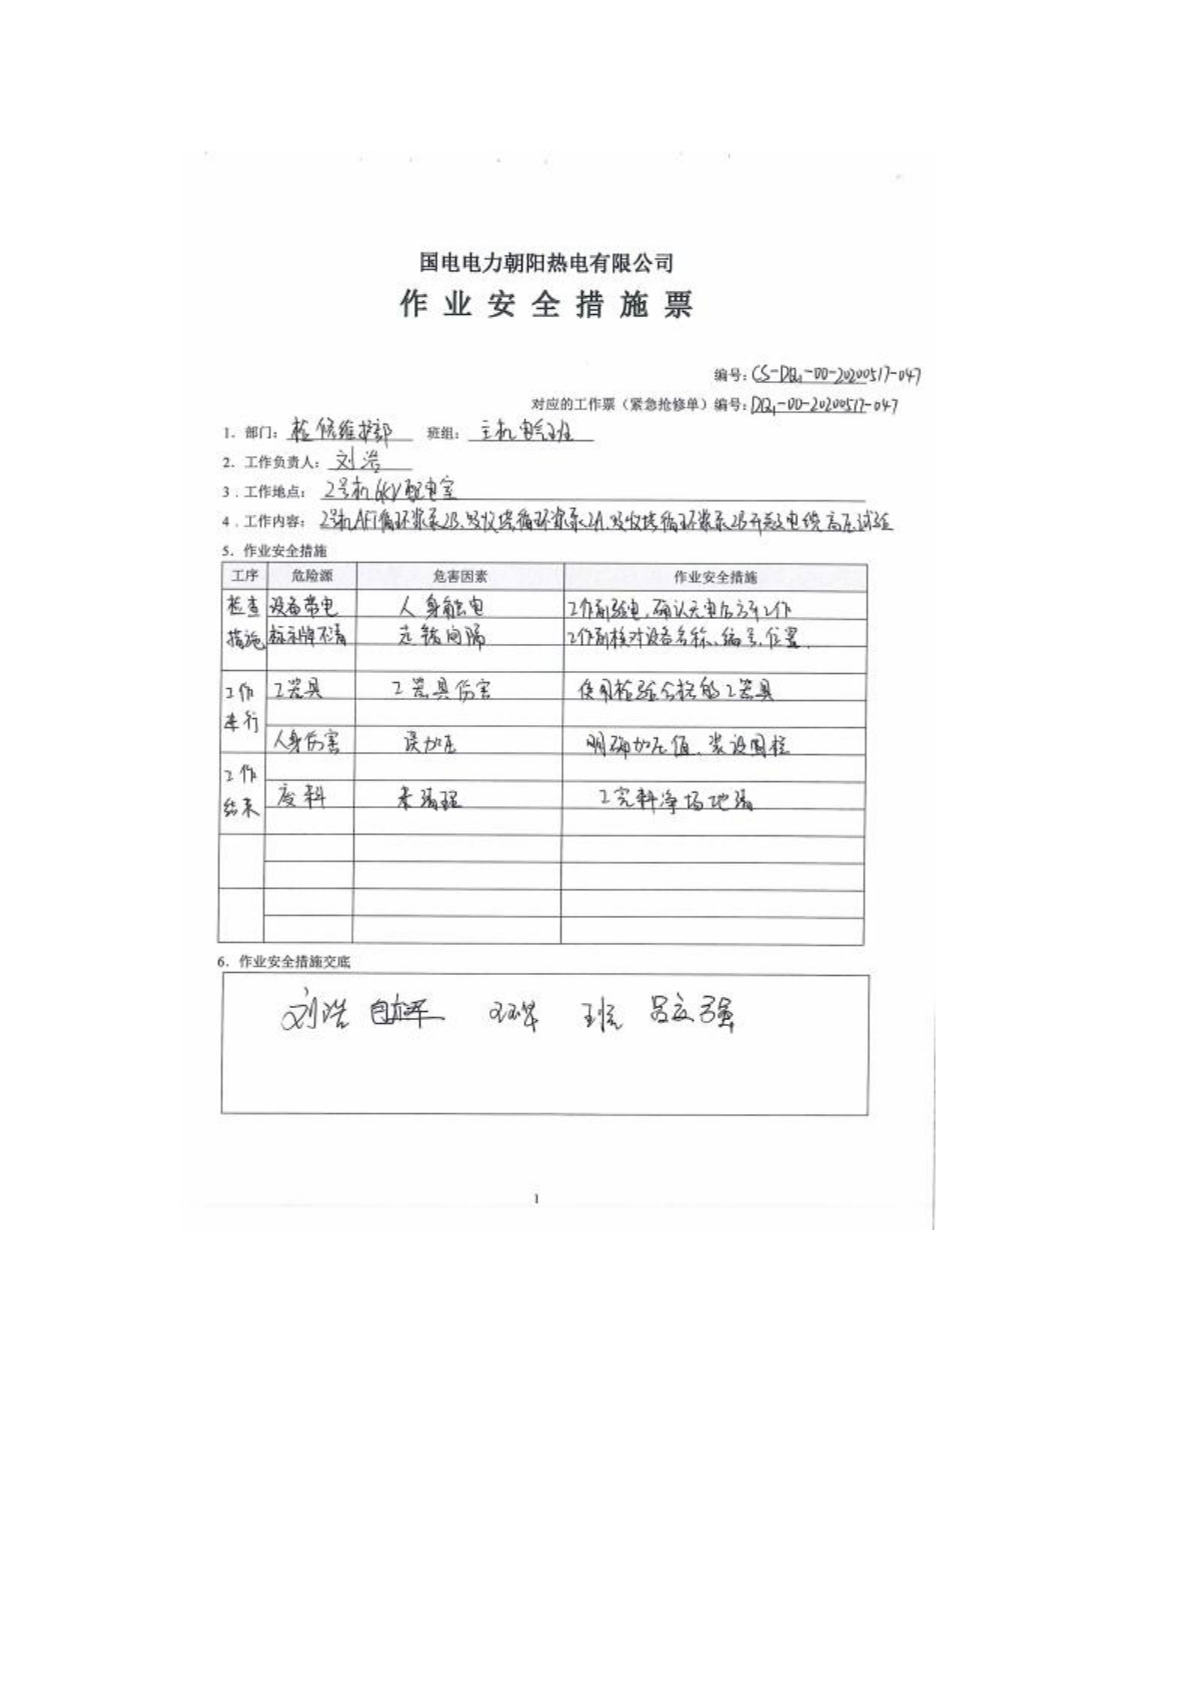 国电电力朝阳热电有限公司
作业安全措施票
编号：CS-DQ1-DD-20200517-047
对应的工作票（紧急抢修单）编号：DQ1-DD-20200517-047
1．部门：检修维护部 班组：主机电气班
2．工作负责人：刘浩
3．工作地点：2号机6kV配电室
4．工作内容：2号机AFT循环浆泵2B、吸收塔循环浆泵2A、吸收塔循环浆泵2B开关及电缆高压试验
5．作业安全措施
工序 危险源 危害因素 作业安全措施
检查措施 设备带电 人身触电 工作前验电，确认无电后方可工作
标示牌不清 走错间隔 工作前核对设备名称、编号、位置.
工作进行 工器具 工器具伤害 使用检验合格的工器具
人身伤害 误加压 明确加压值、装设围栏
工作结束 废料 未清理 工完料净场地清
6．作业安全措施交底
刘浩 吕立强
1